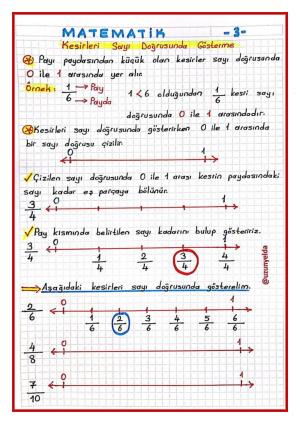 MATEMATİK -3-
Kesirleri Sayı Doğrusunda Gösterme
Payı paydasından küçük olan kesirler sayı doğrusunda
0 ile 1 arasında yer alır.
Örnek: 1/6 → Pay → Payda 1 < 6 olduğundan 1/6 kesri sayı
doğrusunda 0 ile 1 arasındadır.
Kesirleri sayı doğrusunda gösterirken 0 ile 1 arasında
bir sayı doğrusu çizilir.
0 1
✓Çizilen sayı doğrusunda 0 ile 1 arası kesrin paydasındaki
sayı kadar eş parçaya bölünür.
3/4 0 1
✓Pay kısmında belirtilen sayı kadarını bulup gösteririz.
3/4 0 1
1/4 2/4 3/4 4/4
@uzunyelda
⇒ Aşağıdaki kesirleri sayı doğrusunda gösterelim.
2/6 0 1
1/6 2/6 3/6 4/6 5/6 6/6
4/8 0 1
7/10 0 1